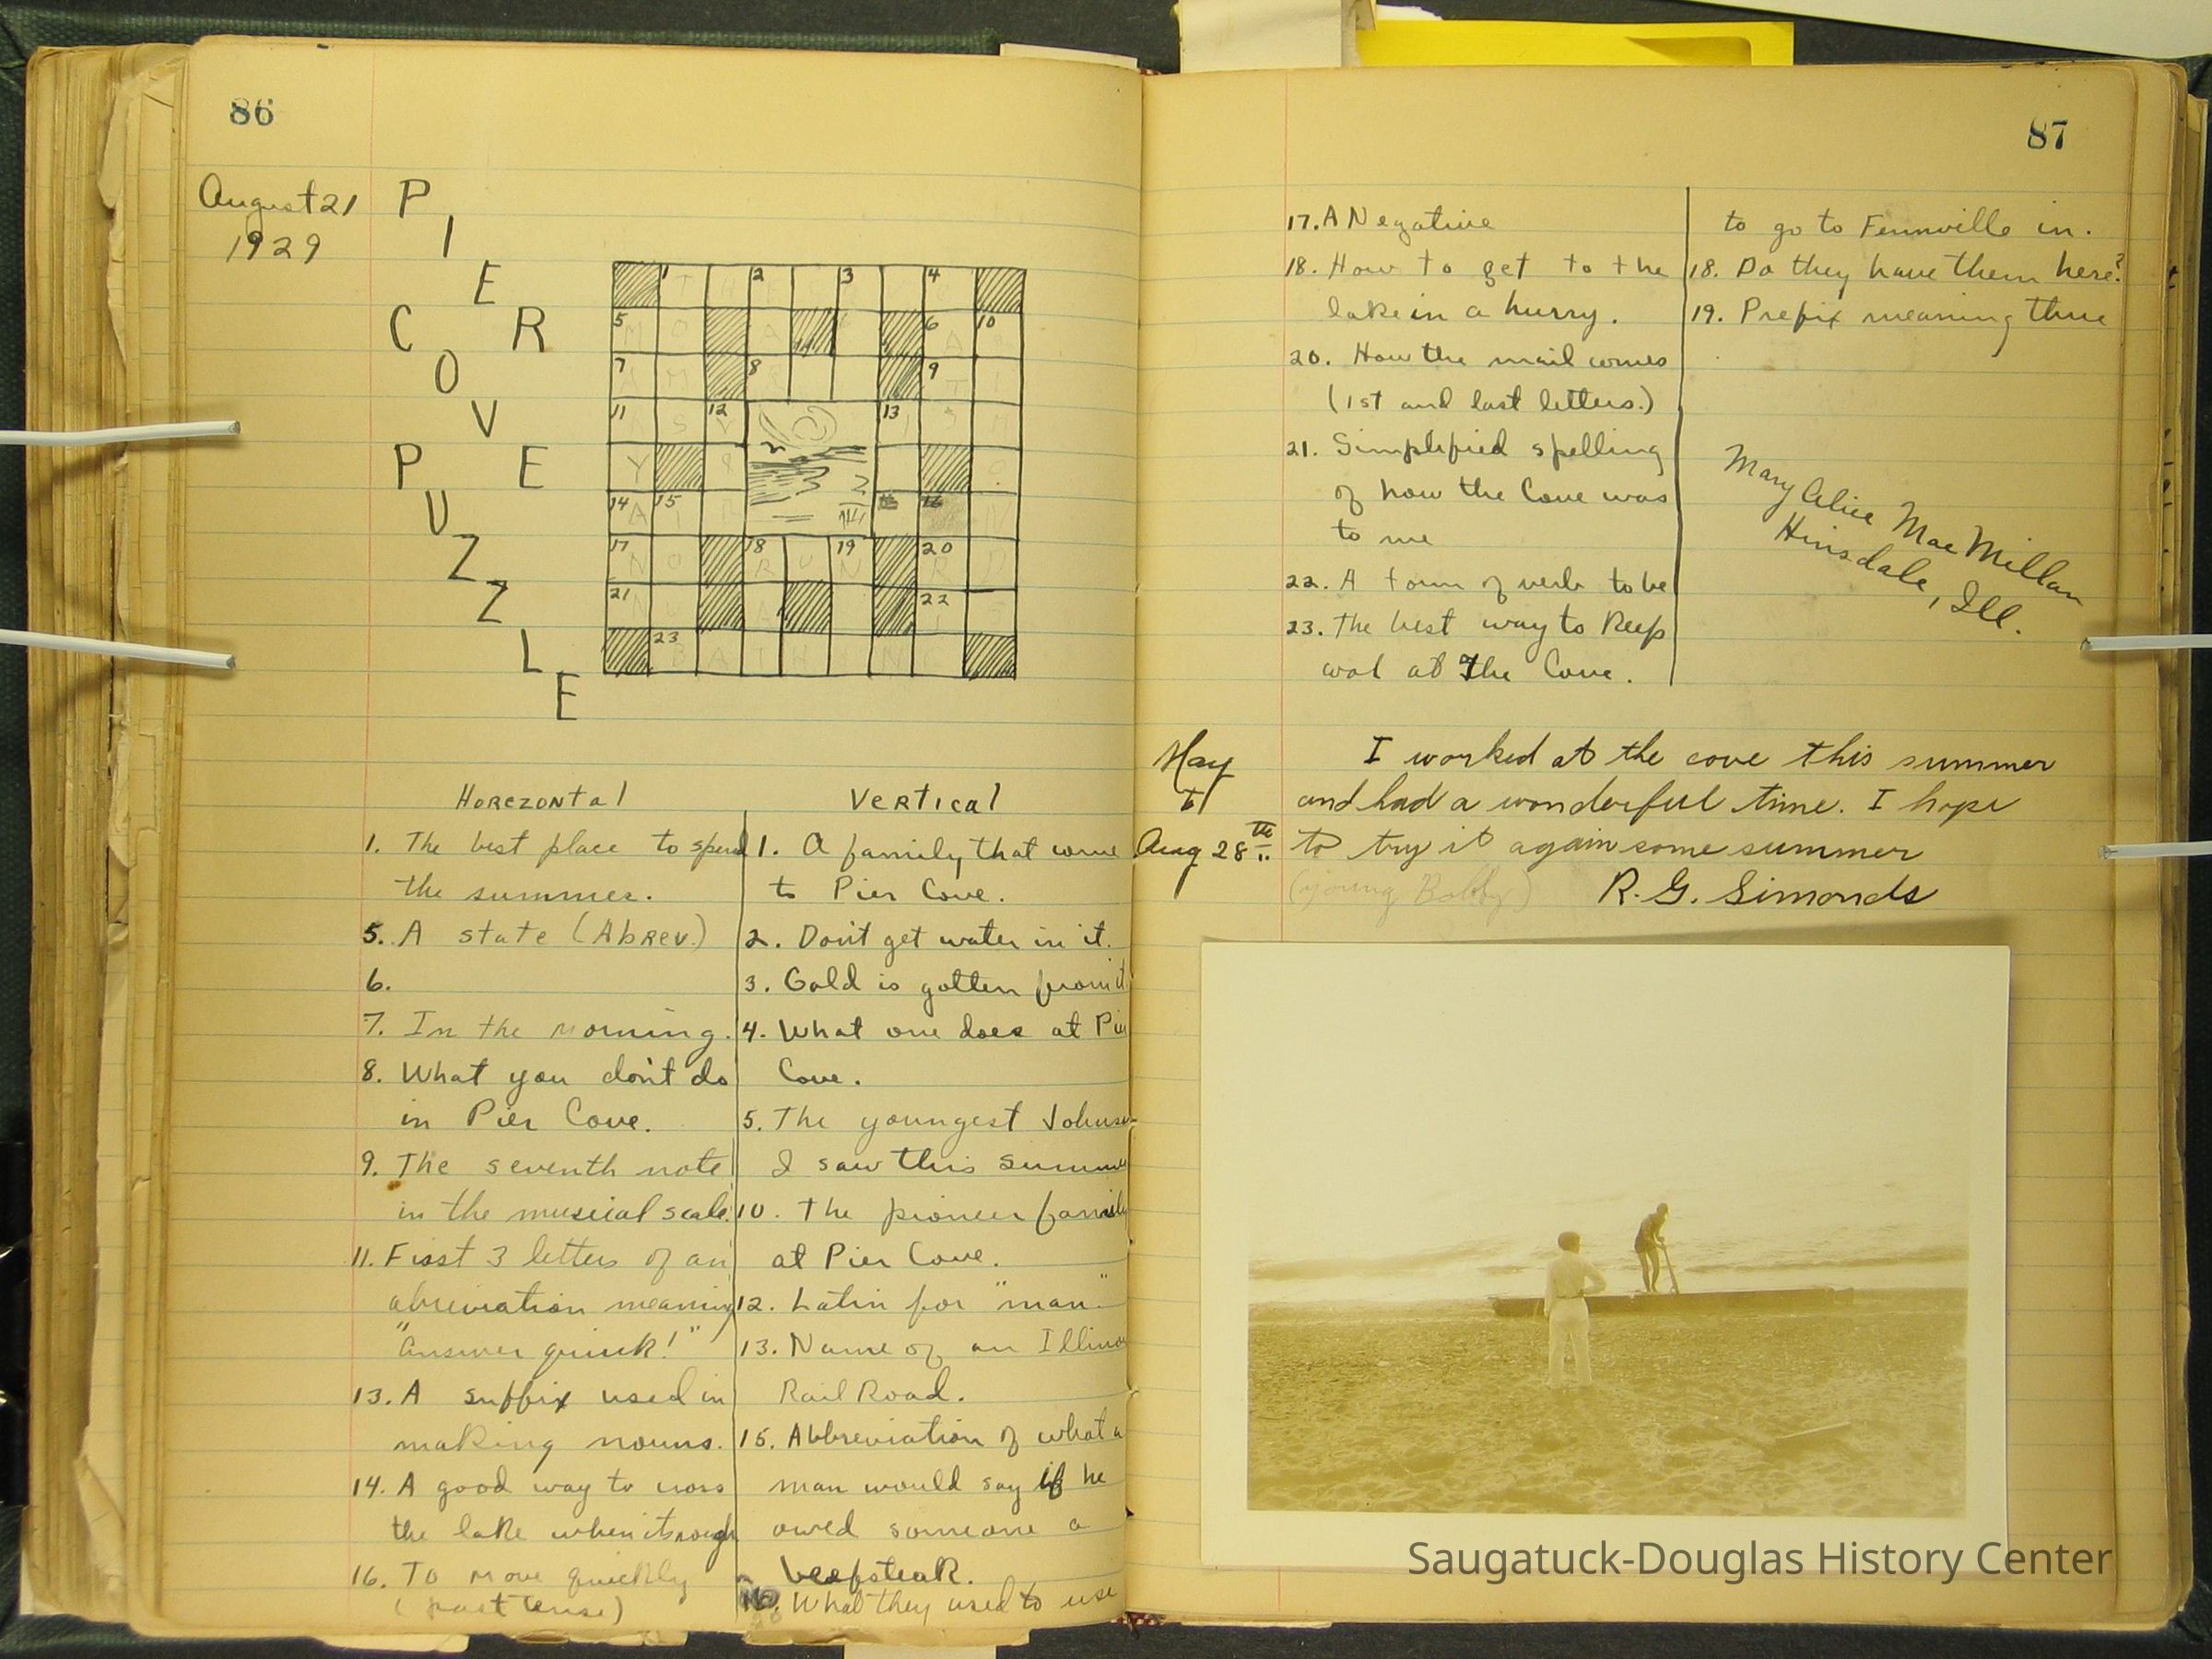 86
August 21
1929
PIER
COVE
PUZZLE
1 2 3 4
5 6 10
7 8 9
11 12 13
14 15 16
17 18 19 20
21 22
23
HOREZONTAL
1. The best place to spend
the summer.
5. A state (Abrev.)
6.
7. In the morning.
8. What you don't do
in Pier Cove.
9. The seventh note
in the musical scale.
11. First 3 letters of an
abreviation meaning
"Answer quick!"
13. A suffix used in
making nouns.
14. A good way to cross
the lake when its rough
16. To move quickly
(past tense)
VERTICAL
1. A family that come
to Pier Cove.
2. Don't get water in it.
3. Gold is gotten from it
4. What one does at Pier
Cove.
5. The youngest Johnson
I saw this summer
10. The pioneer family
at Pier Cove.
12. Latin for "man."
13. Name of an Illinois
Rail Road.
15. Abbreviation of what a
man would say if he
owed someone a
beefsteak.
16. What they used to use
87
17. A Negative
18. How to get to the
lake in a hurry.
20. How the mail comes
(1st and last letters.)
21. Simplefied spelling
of how the Cove was
to me
22. A form of verb to be
23. The best way to keep
cool at The Cove.
to go to Fennville in.
18. Do they have them here?
19. Prefix meaning
Mary Alice MacMillan
Hinsdale, Ill.
May
to
Aug 28th
I worked at the cove this summer
and had a wonderful time. I hope
to try it again some summer
(young Bobby) R. G. Simonds
Saugatuck-Douglas History Center